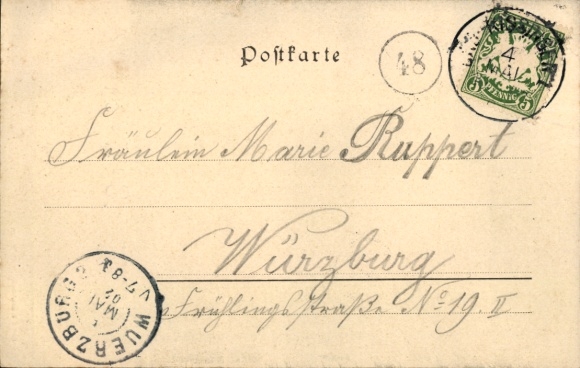 Postkarte
48
4
MAI
PFENNIG
5 5
Fräulein Marie Ruppert
Würzburg
Frühlingsstraße No 19. II
WUERZBURG
MAI
02
V 7-8